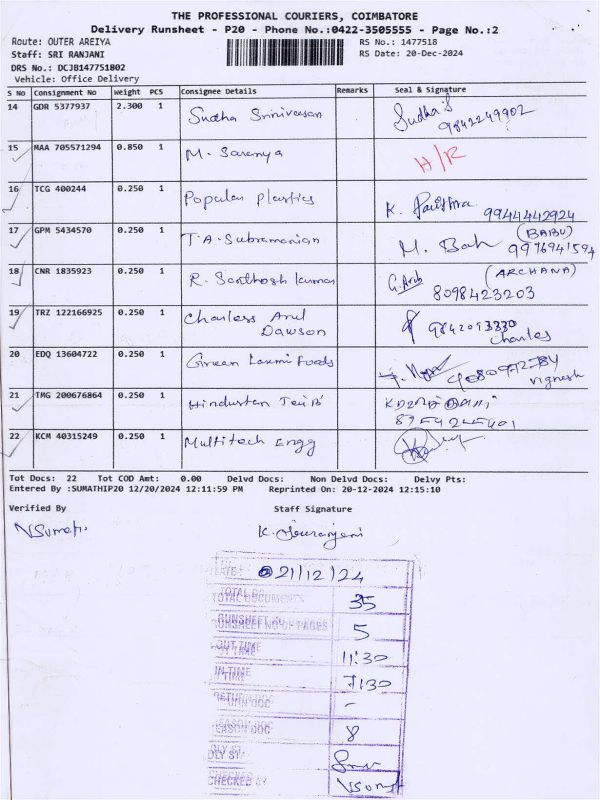 THE PROFESSIONAL COURIERS, COIMBATORE
Delivery Runsheet - P20 - Phone No.:0422-3505555 - Page No.:2
Route: OUTER AREIYA RS No.: 1477518
Staff: SRI RANJANI RS Date: 20-Dec-2024
DRS No.: DCJB147751802
Vehicle: Office Delivery
S No Consignment No Weight PCS Consignee Details Remarks Seal & Signature
14 GDR 5377937 2.300 1 Sudha Srinivasan Sudha S
9842249902
15 MAA 705571294 0.850 1 M. Saranya H/R
16 TCG 400244 0.250 1 Popular Plastics K.
9944442924
17 GPM 5434570 0.250 1 T.A. Subramanian (BABU)
M. Bah 9976941594
18 CNR 1835923 0.250 1 R. Santhosh kumar (ARCHANA)
8098423203
19 TRZ 122166925 0.250 1 Charless Arul 9842093330
Dawson Charles
20 EDQ 13604722 0.250 1 Green Laxmi Foods
vignesh
21 TMG 200676864 0.250 1 Hindustan
22 KCM 40315249 0.250 1 Multitech Engg
Tot Docs: 22 Tot COD Amt: 0.00 Delvd Docs: Non Delvd Docs: Delvy Pts:
Entered By :SUMATHIP20 12/20/2024 12:11:59 PM Reprinted On: 20-12-2024 12:15:10
Verified By Staff Signature
VSumati
DATE 21/12/24
TOTAL DOCUMENTS 35
RUNSHEET NO OF PAGES 5
OUT TIME 11:30
IN TIME 7:30
RETURN DOC -
REASON DOC 8
DLY ST.
CHECKED BY VSumati